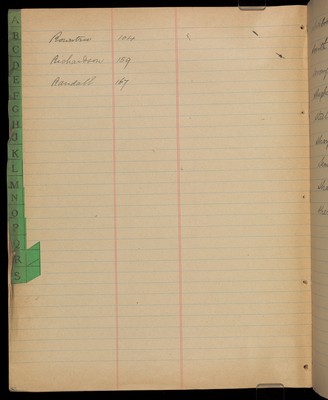 A
B
C
D
E
F
G
H
J
K
L
M
N
O
P
Q
R
S
Rowntree 104
Richardson 159
Randall 167